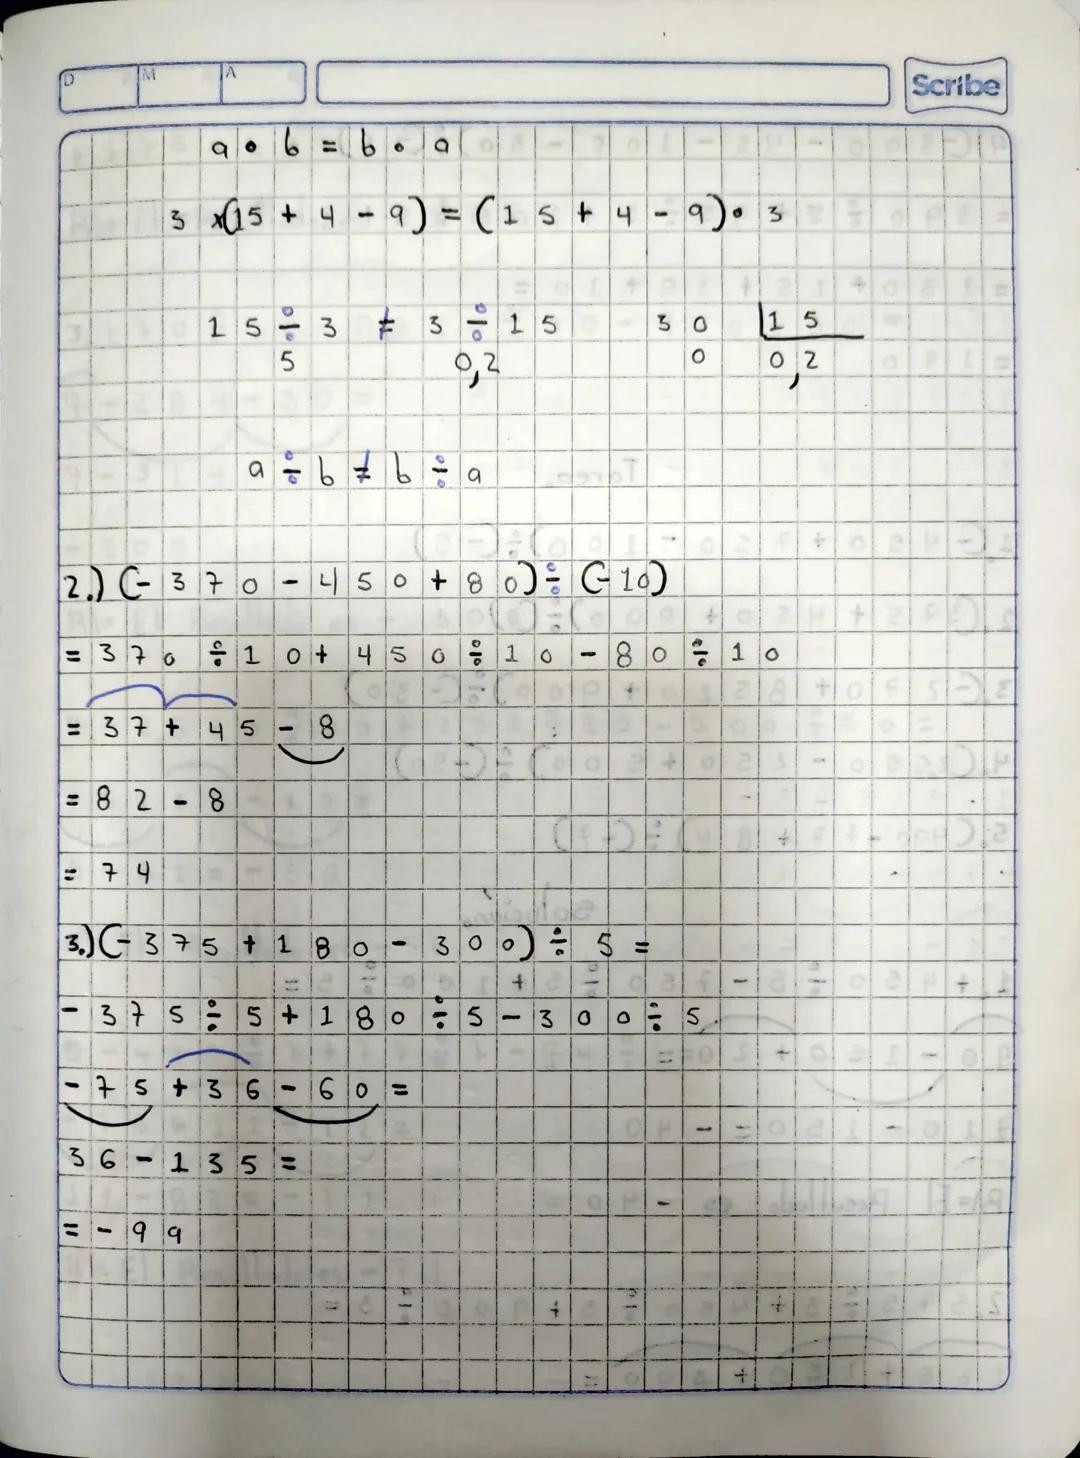 D M A Scribe
a • b = b • a
3 x(15 + 4 - 9) = (15 + 4 - 9)• 3
15 ÷ 3 ≠ 3 ÷ 15 30 15
5 0,2 0 0,2
a ÷ b ≠ b ÷ a
2.) (-370 - 450 + 80) ÷ (-10)
= 370 ÷ 10 + 450 ÷ 10 - 80 ÷ 10
= 37 + 45 - 8
= 82 - 8
= 74
3.) (-375 + 180 - 300) ÷ 5 =
- 375 ÷ 5 + 180 ÷ 5 - 300 ÷ 5
- 75 + 36 - 60 =
36 - 135 =
= - 99